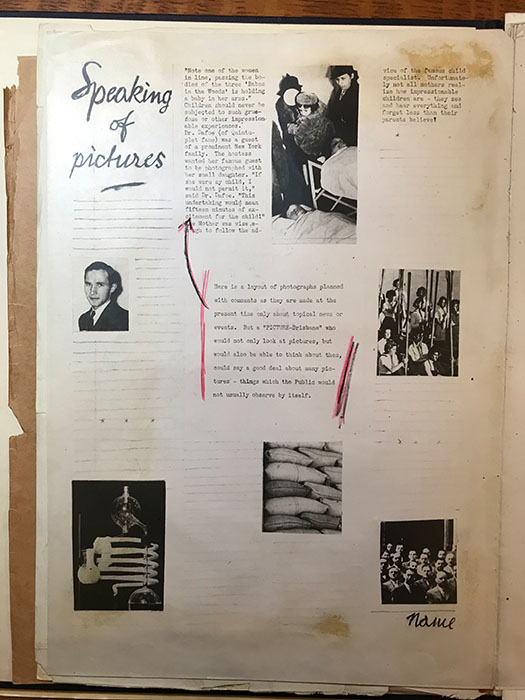 Speaking
of
pictures
"Note one of the women
in line, passing the bo-
dies of the three 'Babes
in the Woods' is holding
a baby in her arms."
Children should never be
subjected to such grue-
some or other impression-
able experiences.
Dr. Dafoe (of Quintu-
plet fame) was a guest
of a prominent New York
family. The hostess
wanted her famous guest
to be photographed with
her small daughter. "If
she were my child, I
would not permit it,"
said Dr. Dafoe. "This
undertaking would mean
fifteen minutes of ex-
citement for the child!"
The Mother was wise e-
nough to follow the ad-
vice of the famous child
specialist. Unfortunate-
ly not all mothers real-
ize how impressionable
children are - they see
and hear everything and
forget less than their
parents believe!
Here is a layout of photographs planned
with comments as they are made at the
present time only about topical news or
events. But a "PICTURE-Brisbane" who
would not only look at pictures, but
would also be able to think about them,
could say a good deal about many pic-
tures - things which the Public would
not usually observe by itself.
Name